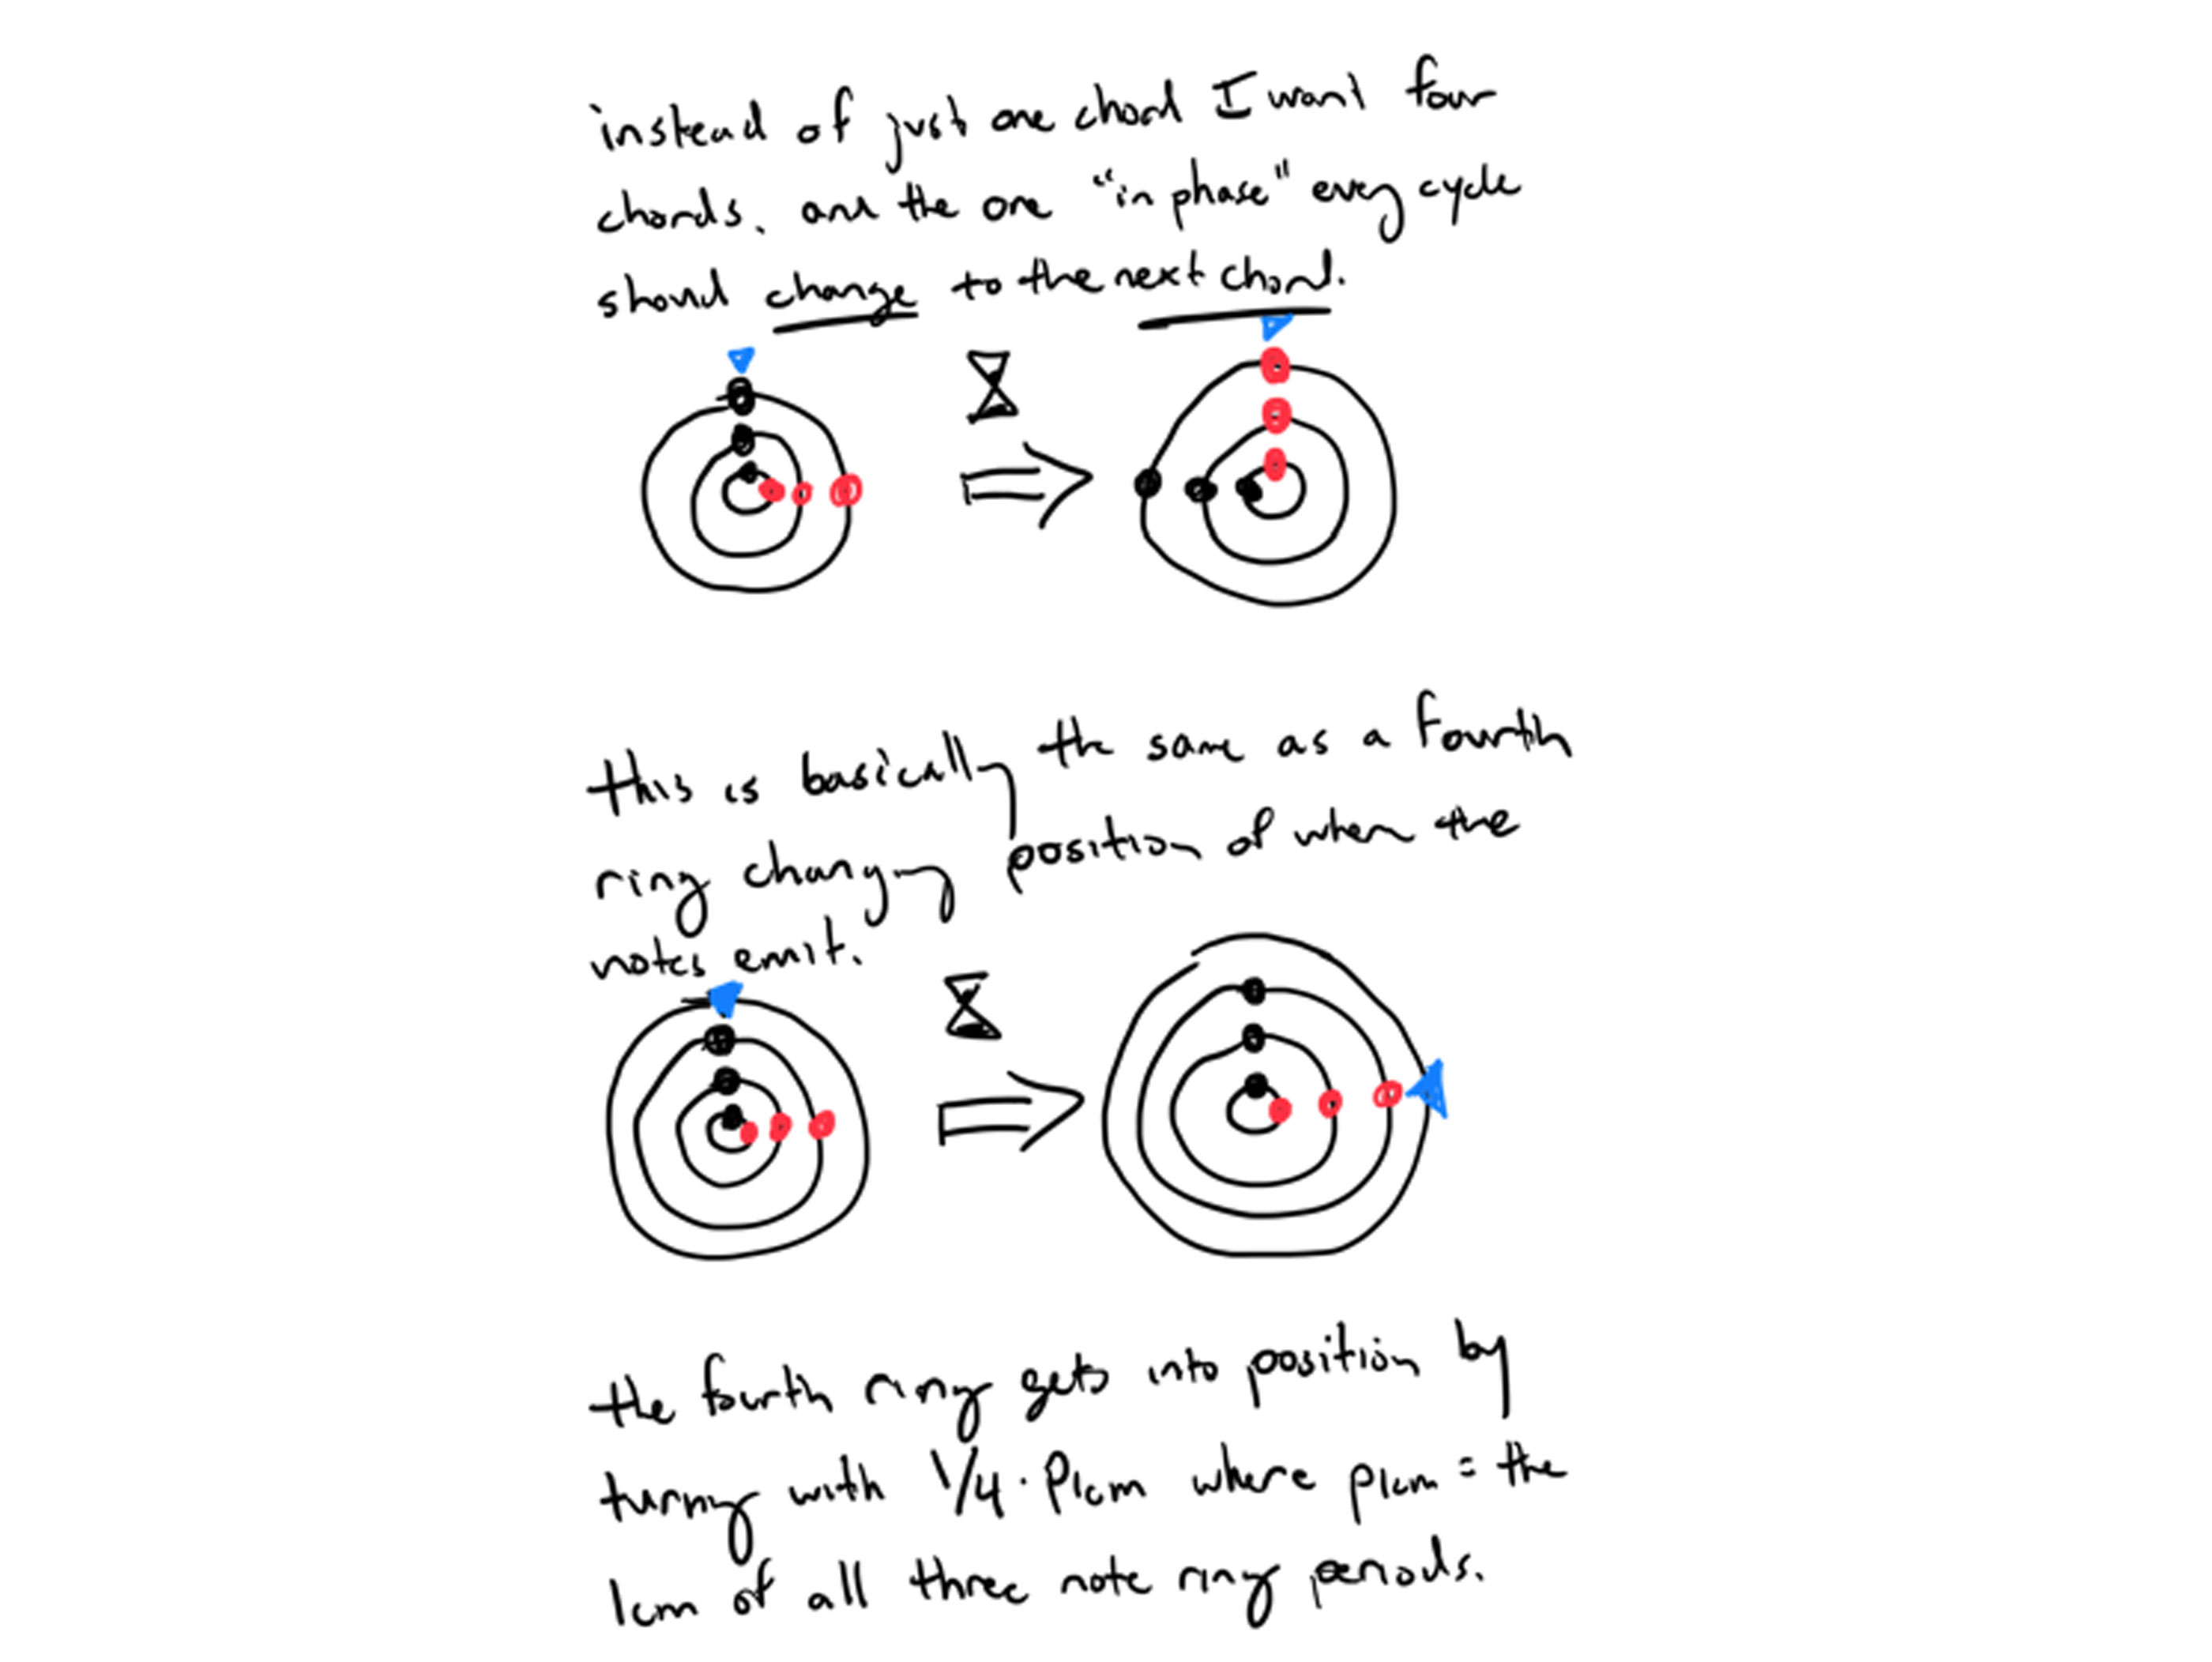 instead of just one chord I want four
chords, and the one "in phase" every cycle
should change to the next chord.
this is basically the same as a fourth
ring changing position of when the
notes emit.
the fourth ring gets into position by
turning with 1/4 · Plcm where Plcm = the
lcm of all three note ring periods.